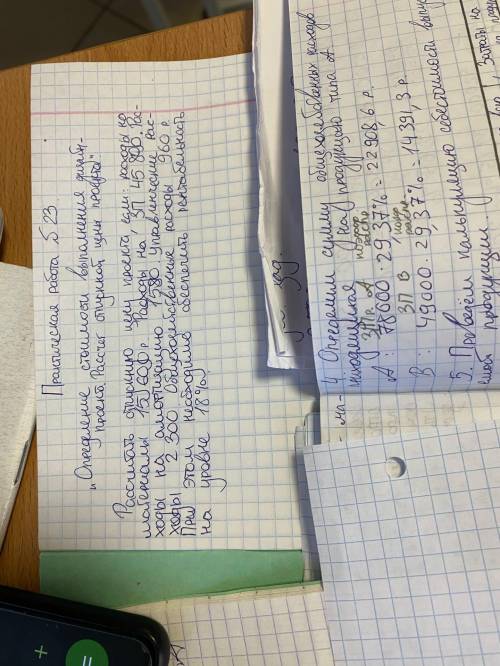 Практическая работа №23
"Определение стоимости выполнения дизайн-
проекта. Рассчет отпускной цены продукта"
Рассчитать отпускную цену проекта, если: расходы на
материалы 150 600 р. Расходы на ЗП 45 800. Рас-
ходы на амортизацию 1580. Управленческие рас-
ходы 2 300. Общехозяйственные расходы 960 р.
При этом необходимо обеспечить рентабельность
на уровне 18%.
зад.
4. Определим сумму общехозяйственных расходов
приходящихся на продукцию типа А
ЗПр А
А: 78000 · 29,37% = 22908,6 р.
ЗП В
В: 49000 · 29,37% = 14391,3 р.
5. Проведём калькуляцию себестоимость
продукции.
затраты на
+
=